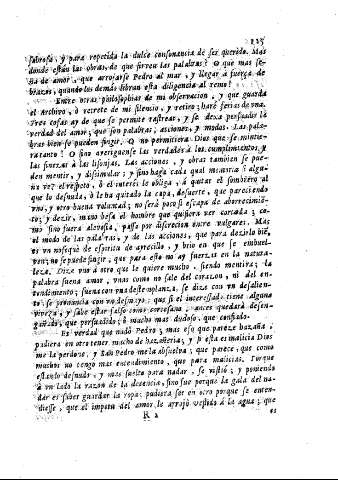 123
sabrosa, y para repetida la dulce consonancia de ser querido. Mas
donde están las obras, de que sirven las palabras? O que mas se-
ña de amor, que arrojarse Pedro al mar, y llegar à fuerça de
braços, quando los demàs libran esta diligencia al remo!
Entre otras philosophias de mi observacion, y que guarda
el Archivo, ò retrete de mi silencio, y retiro; harè feria de una.
Tres cosas ay de que se permite rastrear, y se dexa persuadir la
verdad del amor; que son palabras, acciones, y modos. Las pala-
bras bien se pueden fingir. O no permitiera Dios que se mintie-
ran tanto! O sino averiguense las verdades à los cumplimientos, y
las finezas à las lisonjas. Las acciones, y obras tambien se pue-
den mentir, y dissimular; y sino haga cada qual memoria si algu-
na vez el respeto, ò el interès le obliga, à quitar el sombrero al
que lo desnuda, ò le ha quitado la capa, de suerte, que pareciendo
uno, y otro buena voluntad; no serà poco si escapa de aborrecimie-
to; y dezir, mano besa el hombre que quisiera ver cortada; co-
mo sino fuera alevosia, passe por discrecion entre vulgares. Mas
el modo de las palabras, y de las acciones, que para dezirlo bien,
es un nosequè de espirita de ayrecillo, y brio en que se embuel-
ven; no se puede fingir, que para esto no ay fuerza en la natura-
leza. Dize uno à otro que le quiere mucho, siendo mentira; la
palabra suena amor, mas como no sale del corazon, ni del en-
tendimiento; suena con una destemplanza, se dize con un desalien-
to, se pronuncia con un desmayo; que si el interessado tiene alguna
viveza, y sabe estar falso como cortesano, antes quedarà desen-
gañado, que persuadido; ò mucho mas dudoso, que confiado.
Es verdad que nadò Pedro; mas esso que parece hazaña,
pudiera en otro tener mucho de hazañeria; y si esta es malicia Dios
me la perdone, y San Pedro me la absuelva; que parece, que como
muchos no tengo mas entendimiento, que para malicias. Porque
estando desnudo, y mas suelto para nadar, se vistiò; y poniendo
à un lado la razon de la decencia, sino fue porque la gala del na-
dar es saber guardar la ropa; pudiera ser en otro porque se enten-
diesse, que al impetu del amor se arrojò vestido à la agua; que
R 2
es